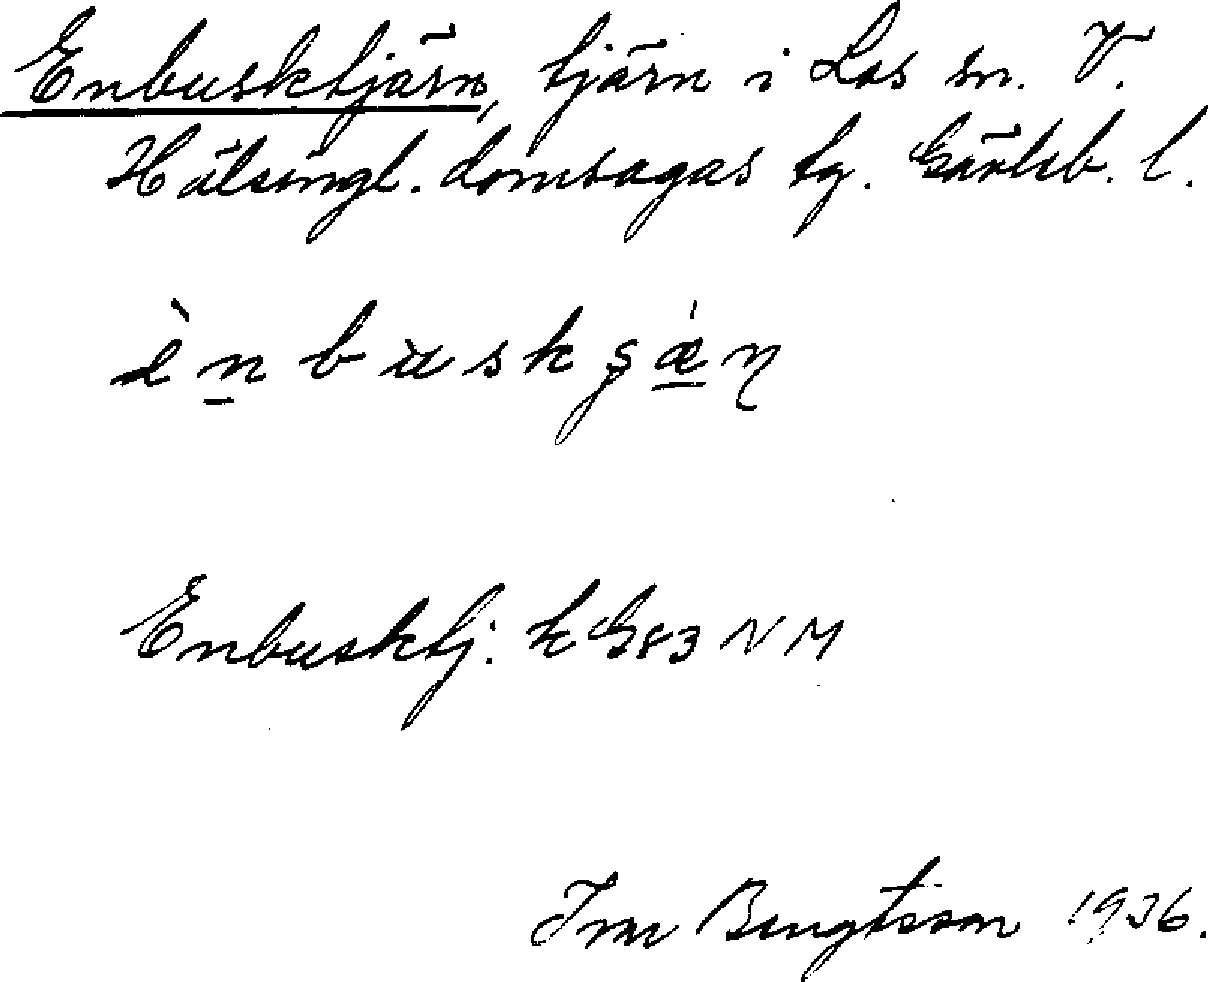 Enbusktjärn, tjärn i Los sn. V.
Hälsingl. domsagas tg. Gävleb. l.
Enbusktj. k G83 NM
Bengtsson 1936.